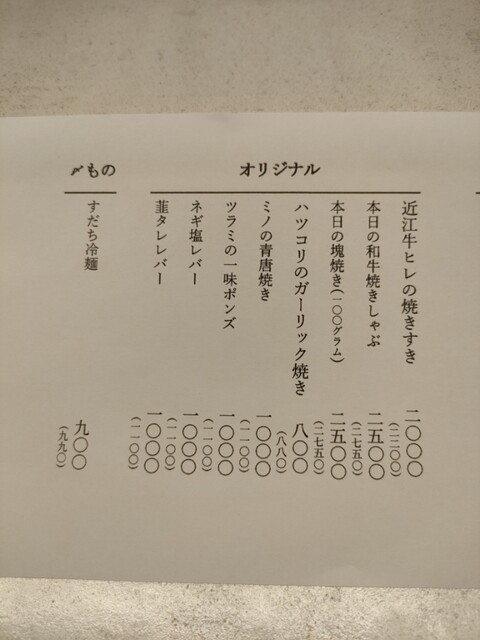 オリジナル
近江牛ヒレの焼きすき 二〇〇〇
(二二〇〇)
本日の和牛焼きしゃぶ 二五〇〇
(二七五〇)
本日の塊焼き(一〇〇グラム) 二五〇〇
(二七五〇)
ハツコリのガーリック焼き 八〇〇
(八八〇)
ミノの青唐焼き 一〇〇〇
(一一〇〇)
ツラミの一味ポンズ 一〇〇〇
(一一〇〇)
ネギ塩レバー 一〇〇〇
(一一〇〇)
韮タレレバー 一〇〇〇
(一一〇〇)
〆もの
すだち冷麺 九〇〇
(九九〇)